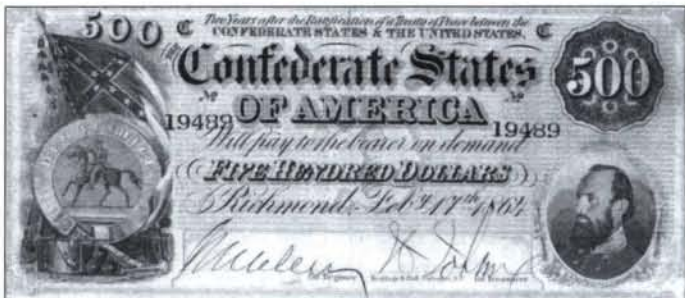 500
C Two Years after the Ratification of a Treaty of Peace between the C
CONFEDERATE STATES & THE UNITED STATES,
THE
Confederate States
500
No No
OF AMERICA
19489 19489
Will pay to the bearer on demand
FIVE HUNDRED DOLLARS
Richmond Feby 17th 1864